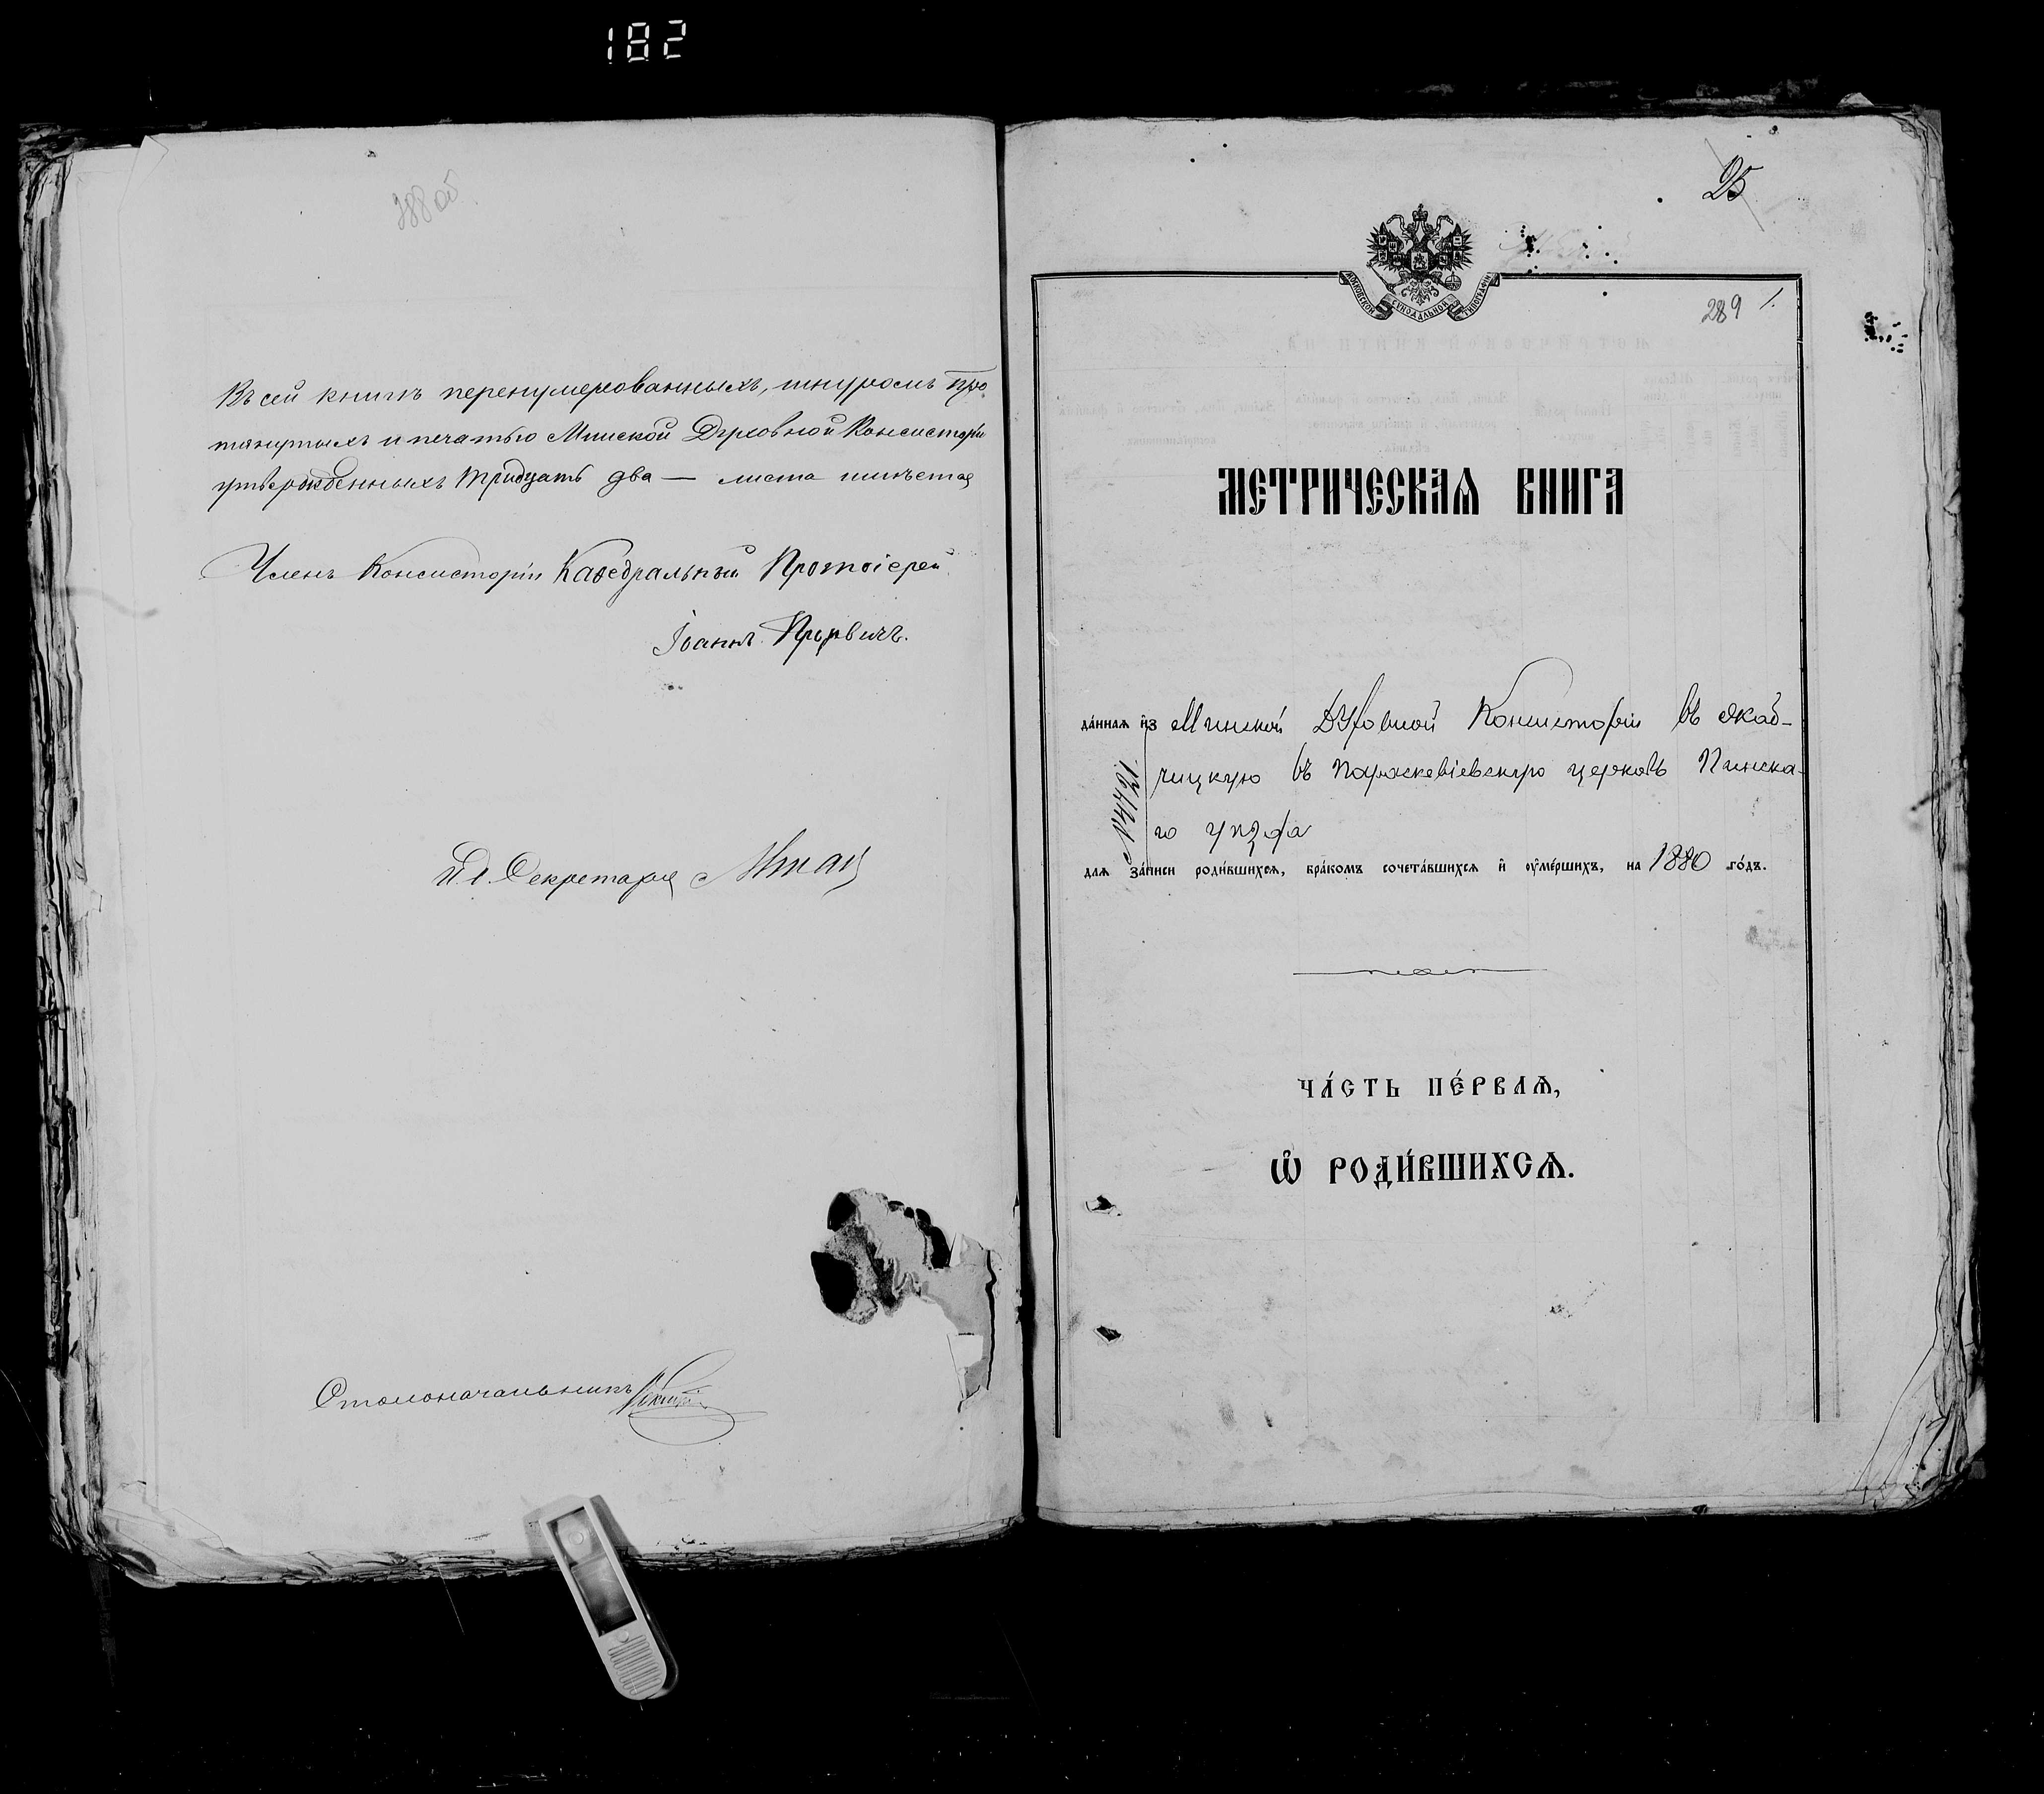 182
288 об
Въ сей книгѣ перенумерованныхъ, шнуромъ про
тянутыхъ и печатью Минской Духовной Консисторіи
утвержденныхъ тридцать два — листа имѣется
Членъ Консисторіи Каѳедральный Протоіерей
Іоаннъ
И. д. Секретаря
Столоначальникъ
25
МОСКОВСКОЙ СѴНОДАЛЬНОЙ ТИПОГРАФІИ
289 1.
МЕТРИЧЕСКАѦ КНИГА
да́ннаѧ и҆з Минской Духовной Консисторіи въ
чицкую въ Параскевіевскую церковь Пинска-
го уѣзда
№ 14421
длѧ за́писи роди́вшихсѧ, бра́комъ сочета́вшихсѧ и҆ ѹ҆ме́ршихъ, на 1880 го́дъ.
ЧА́СТЬ ПЕ́РВАѦ,
Ѡ҆ РОДИ́ВШИХСѦ.